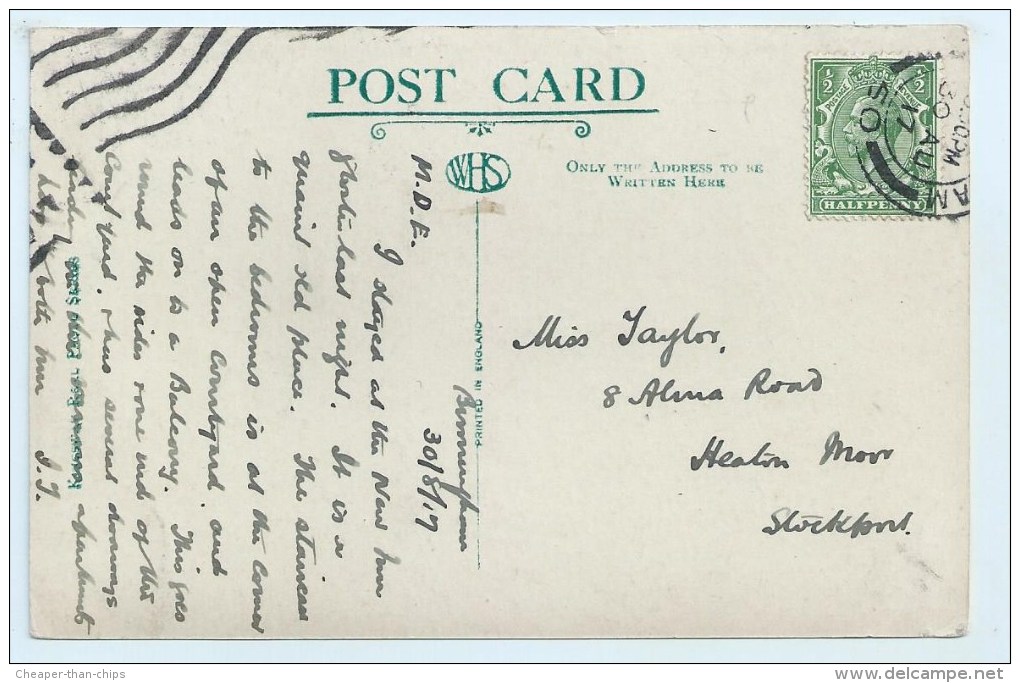 POST CARD
WHS
ONLY THE ADDRESS TO BE
WRITTEN HERE
½ ½
POSTAGE REVENUE
HALFPENNY
30 AU
17
PM
AM
PRINTED IN ENGLAND
KINGSWAY REAL PHOTO SERIES
Birmingham
30/8/17
M.D.E.
I stayed at the New Inn
last night. It is a
quaint old place. The staircase
to the bedrooms is at the corner
of an open Courtyard and
leads on to a Balcony. This goes
round the sides & one end of the
Court Yard. Thus several doorways
apartments
both
J.T.
Miss Taylor,
8 Alma Road
Heaton Moor
Stockport.
Cheaper-than-chips
www.delcampe.net